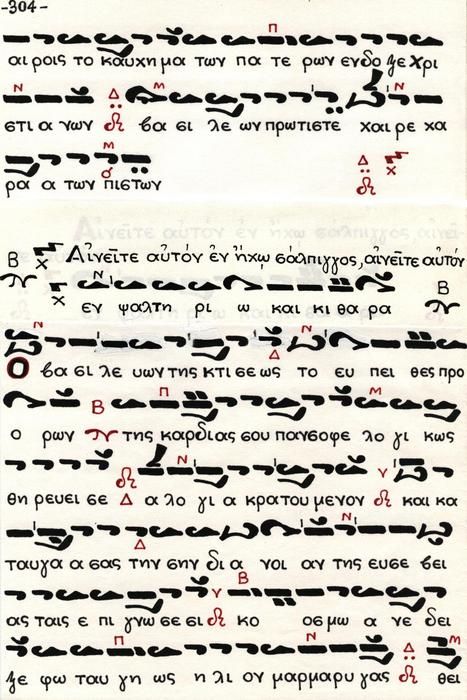 -304-
αι ροις το καυχη μα των πα τε ρων ενδο ξε χρι
στι α νων βα σι λε ων πρωτιστε χαι ρε χα
ρα α των πιστων
Αἰνεῖτε αὐτόν ἐν ἤχῳ σάλπιγγος, αἰνεῖτε αὐτόν
εν ψαλτη ρι ω και κι θα ρα
Ο βα σι λε υων της κτι σε ως το ευ πει θες προ
ο ρων της καρδιας σου πανσοφε λο γι κως
θη ρευει σε α λο γι α κρατου μενον και κα
ταυγα α σας την σην δι α νοι αν της ευσε βει
ας ταις ε πι γνω σε σι κο οσμω α νε δει
ξε φω ταυ γη ως η λι ον μαρμαρυ γας θει